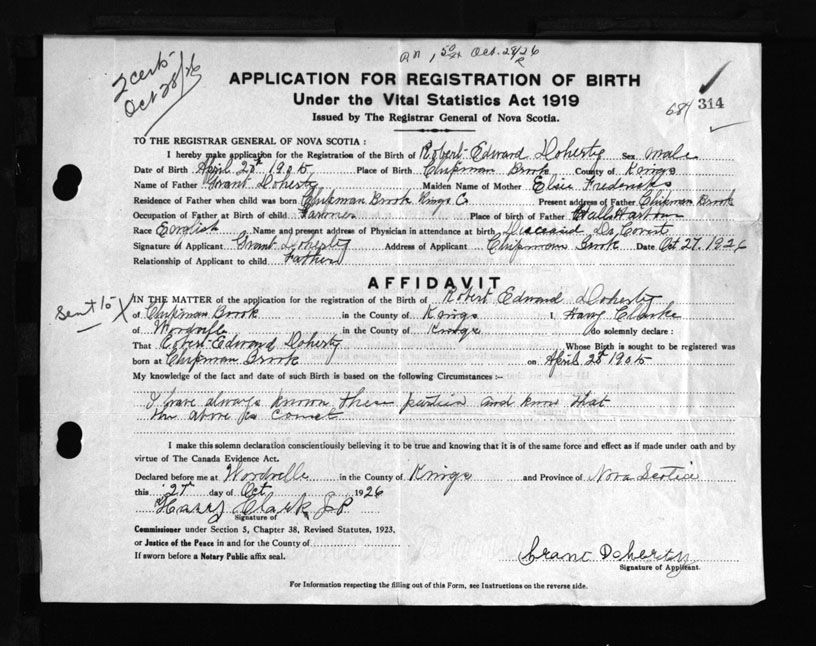 2 certs
Oct 28/26
Oct. 28/26
APPLICATION FOR REGISTRATION OF BIRTH
Under the Vital Statistics Act 1919
Issued by The Registrar General of Nova Scotia.
684 314
TO THE REGISTRAR GENERAL OF NOVA SCOTIA :
I hereby make application for the Registration of the Birth of Robert Edward Doherty Sex male
Date of Birth April 25th 1905 Place of Birth Chipman Brook County of Kings
Name of Father Grant Doherty Maiden Name of Mother Elsie Fredericks
Residence of Father when child was born Chipman Brook Kings Co Present address of Father Chipman Brook
Occupation of Father at Birth of child Place of birth of Father Halls Harbour
Race English Name and present address of Physician in attendance at birth Deceased Dr Covert
Signature of Applicant Grant Doherty Address of Applicant Chipman Brook Date Oct 27. 1926
Relationship of Applicant to child Father
AFFIDAVIT
Sent to X
IN THE MATTER of the application for the registration of the Birth of Robert Edward Doherty
of Chipman Brook in the County of Kings I, Harry Clarke
of Woodville in the County of Kings do solemnly declare :
That Robert Edward Doherty Whose Birth is sought to be registered was
born at Chipman Brook on April 25th 1905
My knowledge of the fact and date of such Birth is based on the following Circumstances :–
I have always known these parties and know that
the above is correct
I make this solemn declaration conscientiously believing it to be true and knowing that it is of the same force and effect as if made under oath and by
virtue of The Canada Evidence Act.
Declared before me at Woodville in the County of Kings and Province of Nova Scotia
this 27th day of Oct 1926
Harry Clark J P
Signature of
Commissioner under Section 5, Chapter 38, Revised Statutes, 1923,
or Justice of the Peace in and for the County of
If sworn before a Notary Public affix seal.
Grant Doherty
Signature of Applicant.
For Information respecting the filling out of this Form, see Instructions on the reverse side.